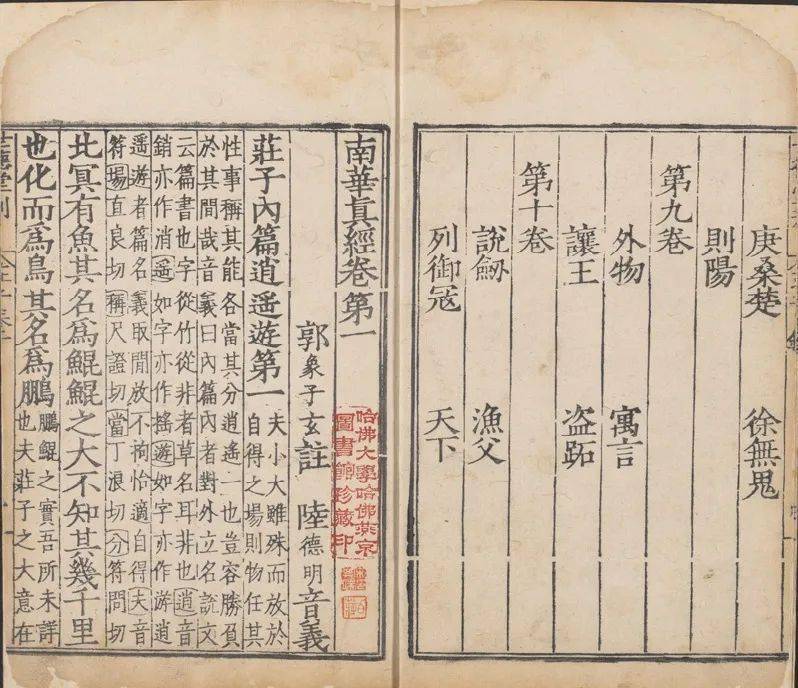 庚桑楚 徐無鬼
則陽
第九卷
外物 寓言
讓王 盜跖
第十卷
說劒 漁父
列御寇 天下
南華眞經卷第一
郭象子玄註 陸德明音義
哈佛大學哈佛燕京
圖書館珍藏印
莊子內篇逍遥遊第一
夫小大雖殊而放於
自得之場則物任其
性事稱其能各當其分逍遙一也豈容勝負
於其間哉音義曰內篇內者對外立名說文
云篇書也字從竹從非者草名耳非也逍音
銷亦作消遥如字亦作揺遊如字亦作游逍
遥遊者篇名義取閒放不拘怡適自得夫音
符場直良切稱尺證切當丁浪切分符問切
北冥有魚其名爲鯤鯤之大不知其幾千里
也化而爲鳥其名爲鵬
鵬鯤之實吾所未詳
也夫莊子之大意在